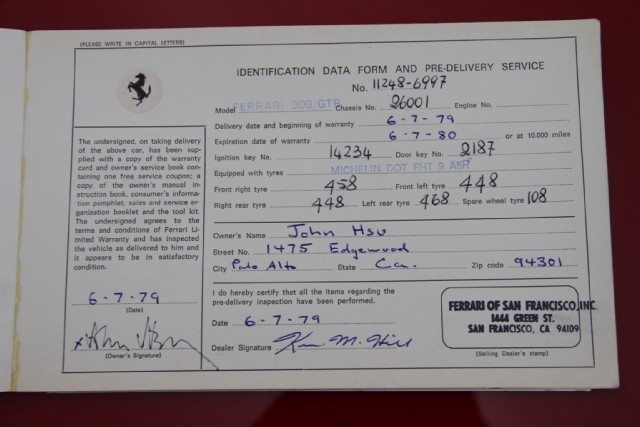 (PLEASE WRITE IN CAPITAL LETTERS)
IDENTIFICATION DATA FORM AND PRE-DELIVERY SERVICE
No. 11248-6997
Model FERRARI 308/GTB Chassis No. 26001 Engine No.
Delivery date and beginning of warranty 6-7-79
Expiration date of warranty 6-7-80 or at 10.000 miles
Ignition key No. 14234 Door key No. 2187
Equipped with tyres MICHELIN DOT FHT 9 A5R
Front right tyre 458 Front left tyre 448
Right rear tyre 448 Left rear tyre 468 Spare wheel tyre 108
Owner's Name John Hsu
Street No. 1475 Edgewood
City Palo Alto State Ca. Zip code 94301
I do hereby certify that all the items regarding the
pre-delivery inspection have been performed.
Date 6-7-79
Dealer Signature Ken M. Hill
FERRARI OF SAN FRANCISCO, INC.
1444 GREEN ST.
SAN FRANCISCO, CA 94109
(Selling Dealer's stamp)
The undersigned, on taking delivery
of the above car, has been sup-
plied with a copy of the warranty
card and owner's service book con-
taining one free service coupon; a
copy of the owner's manual in-
struction book, consumer's informa-
tion pamphlet, sales and service or-
ganization booklet and the tool kit.
The undersigned agrees to the
terms and conditions of Ferrari Li-
mited Warranty and has inspected
the vehicle as delivered to him and
it appears to be in satisfactory
condition.
6-7-79
(Date)
x
(Owner's Signature)